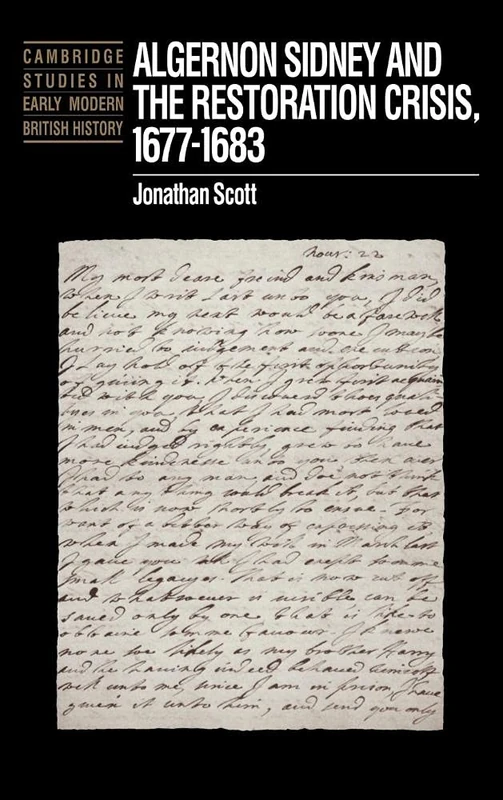 CAMBRIDGE
STUDIES IN
EARLY MODERN
BRITISH HISTORY
ALGERNON SIDNEY AND
THE RESTORATION CRISIS,
1677-1683
Jonathan Scott
Nour: 22
My most deare freind and kinsman,
when I writ last unto you, I did
beleeve my next would be a farewell
and not knowing how soone I may be
hurried to judgement and execution
I lay hold of the first opportunity
of giuing it. When I grew first acquain
ted with you, I discouerd those quali
tyes in you, that I had most loved
in men, and by experience finding that
I had iudged rightly grew to haue
more kindnesse unto you then euer
I had to any man and doe not think
that any thing would break it, but that
which is now shortly to ensue. For
want of a better way of expressing it
when I made my will in March last
I gaue you
small legacyes. that is now cut off
and whatsoeuer is uisible can be
saued only by one that is like to
obtaine somme fauour. I knowe
none soe likely as my brother Harry
and he hauing indeed behaued himself
well unto me, since I am in prison, I haue
giuen it unto him, and send you only